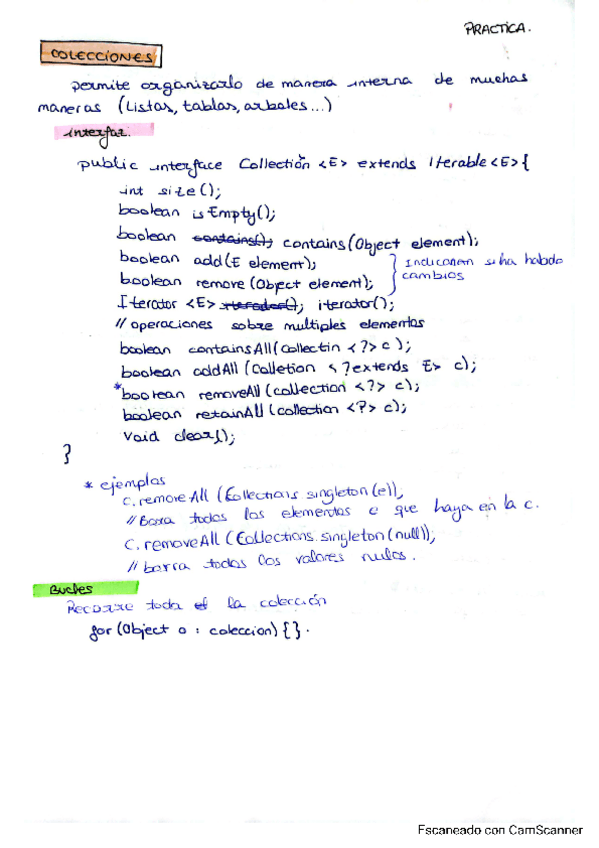 PRACTICA.
COLECCIONES
permite organizarlo de manera interna de muchas
maneras (Listas, tablas, arboles...)
interfaz.
public interface Collection <E> extends Iterable<E>{
int size();
boolean isEmpty();
boolean contains(); contains(Object element);
boolean add(E element);
boolean remove(Object element);
Indicaran si ha habido
cambios
Iterator <E> iterator();
// operaciones sobre multiples elementos
boolean containsAll(Collectin <?> c);
boolean addAll (Colletion <? extends E> c);
* boolean removeAll (collection <?> c);
boolean retainAll (collection <?> c);
void clear();
}
* ejemplos
c.removeAll (Collections singleton(e)),
// Borra todos los elementos e que haya en la c.
C.removeAll (Collections.singleton(null)),
// borra todos los valores nulos.
Bucles
Recorre toda la colección
for (Object o : coleccion) {}.
Escaneado con CamScanner